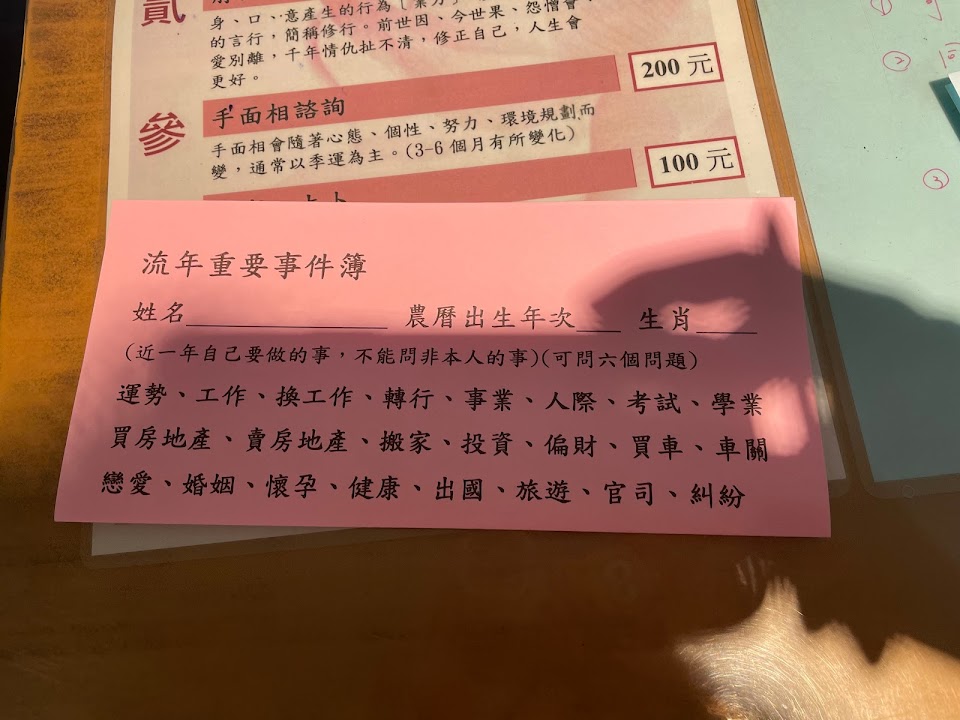 貳
身、口、意產生的行為
的言行，簡稱修行。前世因、今世果、怨憎會、
愛別離，千年情仇扯不清，修正自己，人生會
更好。
200 元
參
手面相諮詢
手面相會隨著心態、個性、努力、環境規劃而
變，通常以季運為主。(3-6 個月有所變化)
100 元
流年重要事件簿
姓名 農曆出生年次 生肖
(近一年自己要做的事，不能問非本人的事)(可問六個問題)
運勢、工作、換工作、轉行、事業、人際、考試、學業
買房地產、賣房地產、搬家、投資、偏財、買車、車關
戀愛、婚姻、懷孕、健康、出國、旅遊、官司、糾紛
②
③